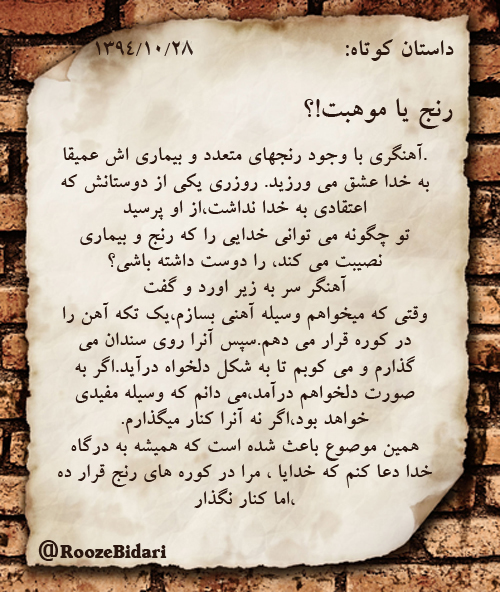 داستان کوتاه: ۱۳۹٤/۱۰/۲۸
رنج یا موهبت!؟
.آهنگری با وجود رنجهای متعدد و بیماری اش عمیقا
به خدا عشق می ورزید. روزری یکی از دوستانش که
اعتقادی به خدا نداشت،از او پرسید
تو چگونه می توانی خدایی را که رنج و بیماری
نصیبت می کند، را دوست داشته باشی؟
آهنگر سر به زیر اورد و گفت
وقتی که میخواهم وسیله آهنی بسازم،یک تکه آهن را
در کوره قرار می دهم.سپس آنرا روی سندان می
گذارم و می کوبم تا به شکل دلخواه درآید.اگر به
صورت دلخواهم درآمد،می دانم که وسیله مفیدی
خواهد بود،اگر نه آنرا کنار میگذارم.
همین موصوع باعث شده است که همیشه به درگاه
خدا دعا کنم که خدایا ، مرا در کوره های رنج قرار ده
،اما کنار نگذار
@RoozeBidari